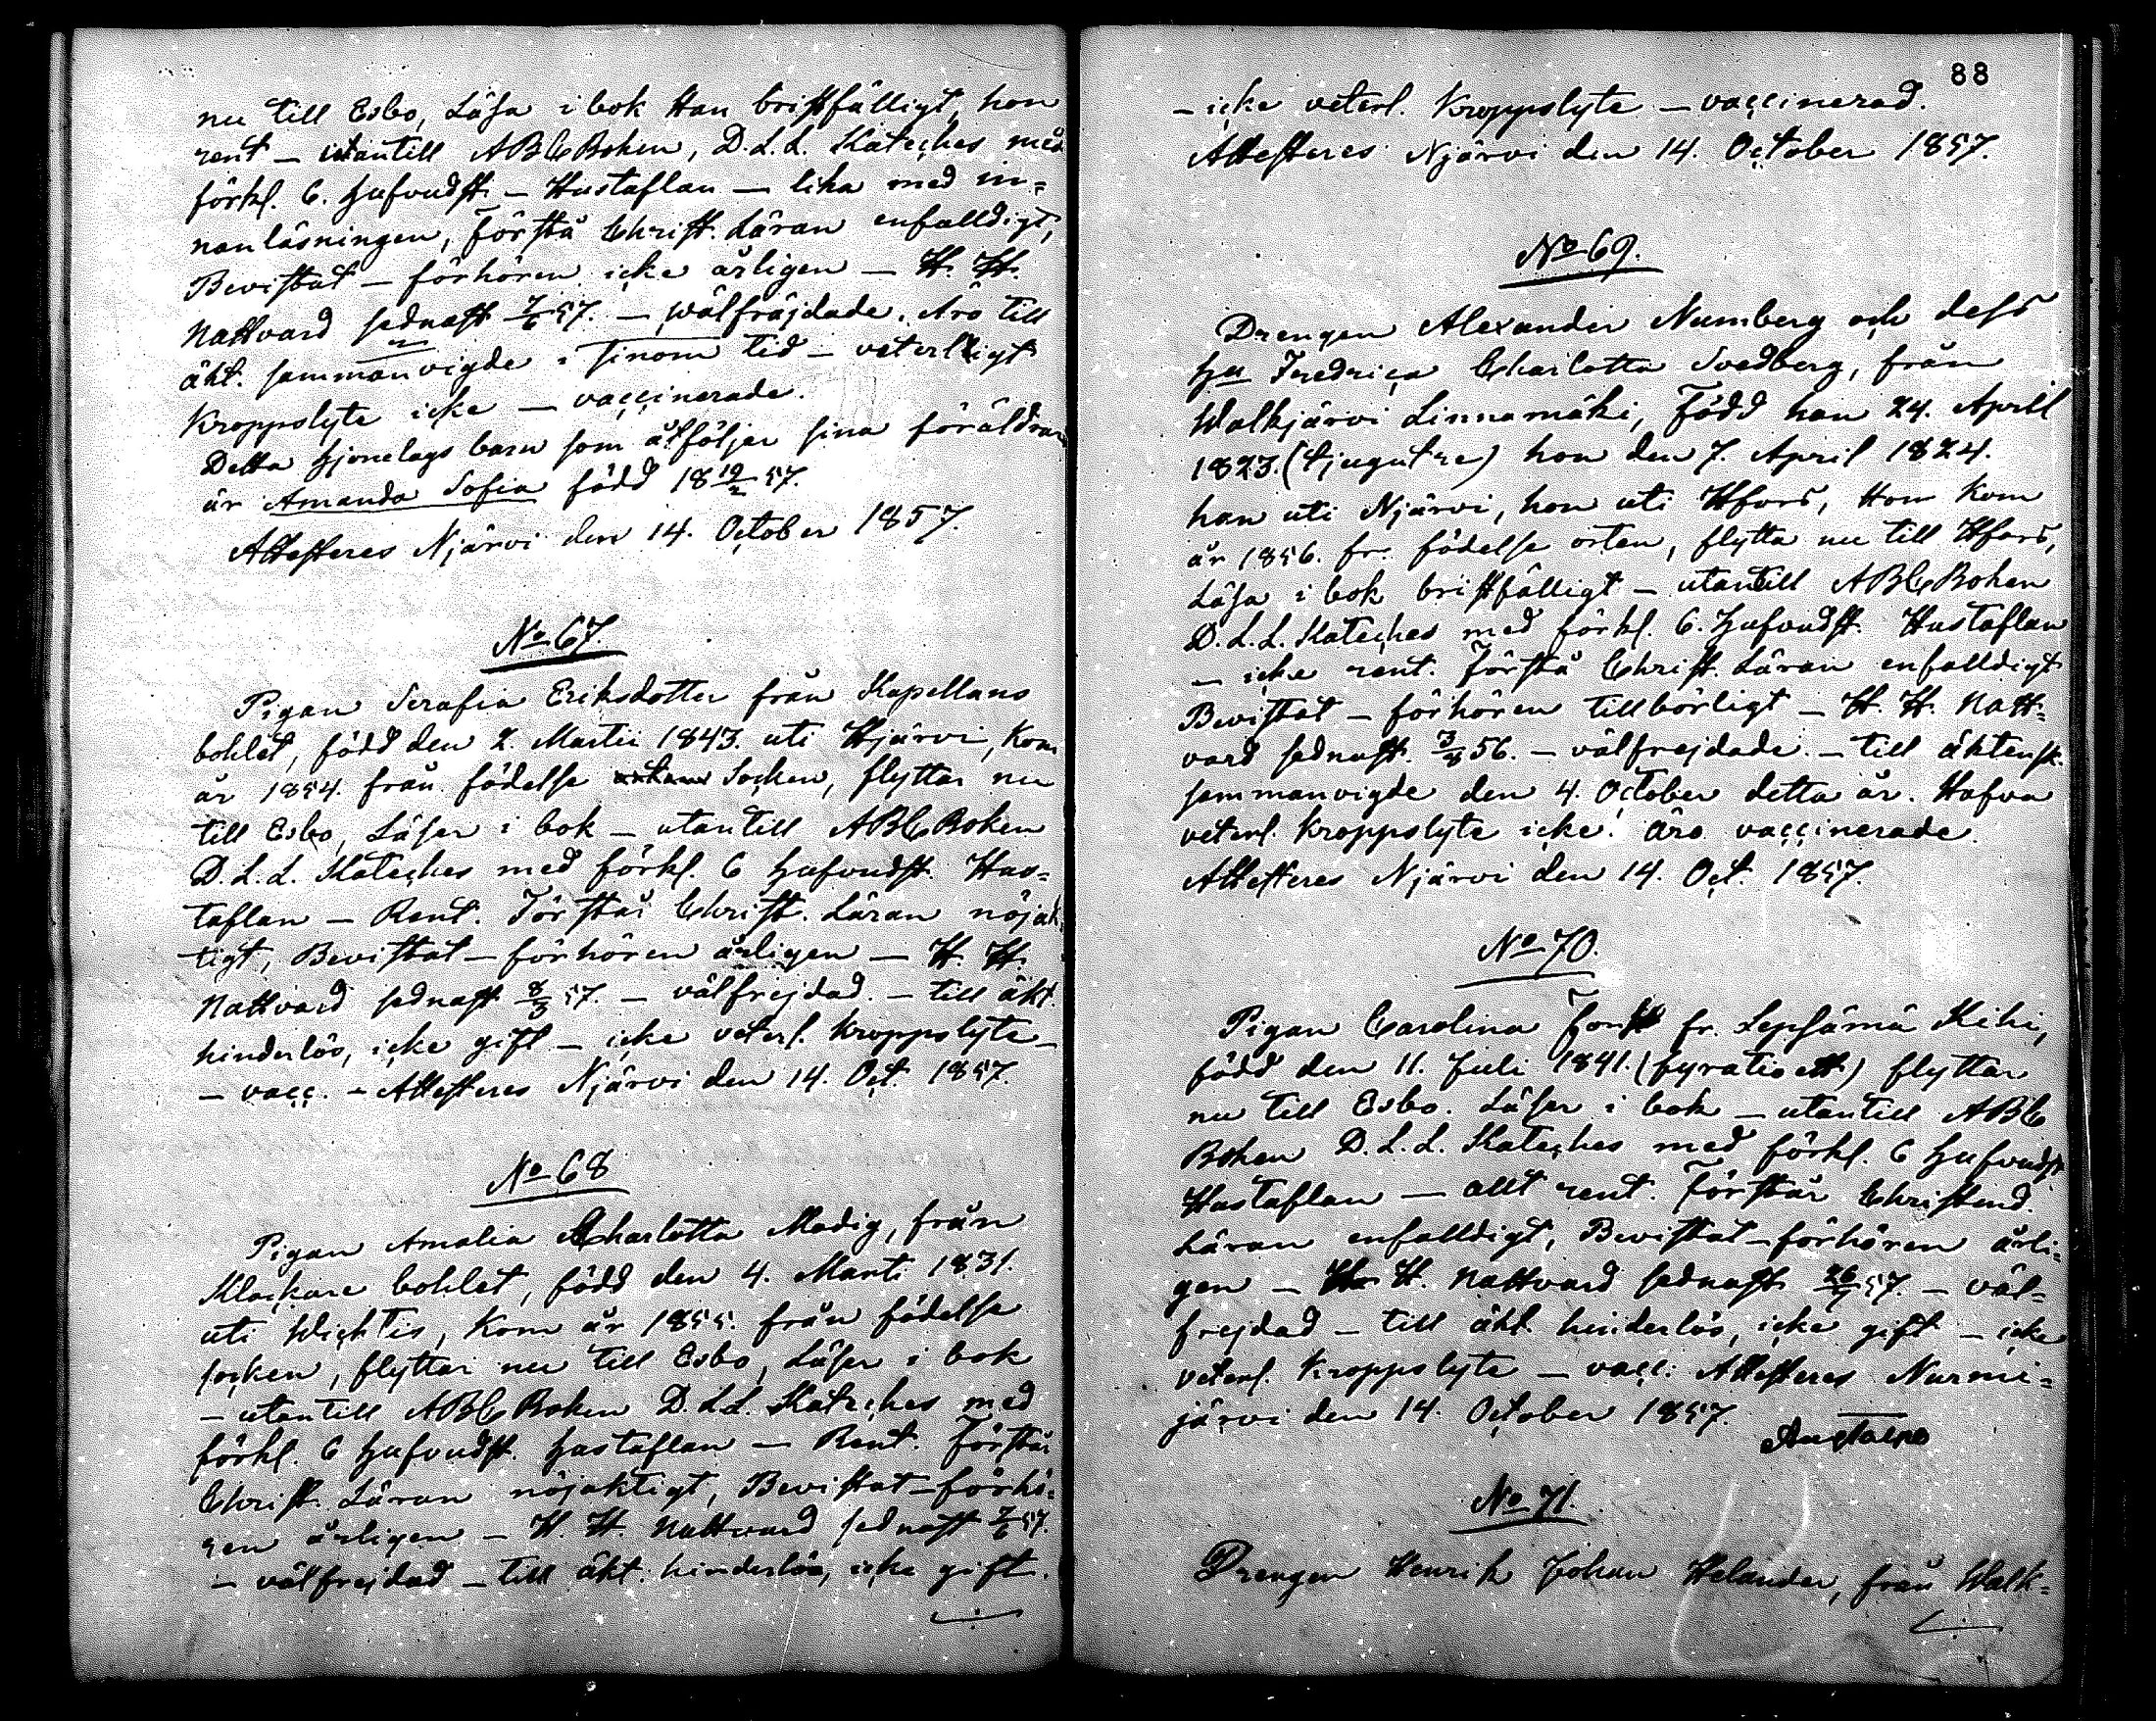 nu till Esbo, Läsa i bok Han bristfälligt, hon
rent — utantill ABCBoken, D.L.L. Kateches med
förkl. 6. Hufvudst. — Hustaflan — lika med in=
nanläsningen, Förstå Christ. Läran enfalldigt,
Bevistat — förhören icke årligen — H. H.
Nattvard sednast 7/6 57. — wälfräjdade. Äro till
äkt. sammanvigde i sinom tid — veterligt
Kroppslyte icke — vaccinerade.
Detta Hjonelags barn som åtföljer sina föräldrar
är Amanda Sofia född 18 19/2 57.
Attesteres Njärvi den 14. October 1857.
No 67.
Pigan Serafia Eriksdotter från Kapellans
bohlet, född den 2. Martii 1843. uti Hjärvi, Kom
år 1854. från födelse Socken, flyttar nu
till Esbo, Läser i bok — utantill ABC Boken
D.L.L. Kateches med förkl. 6 Hufvudst. Hus=
taflan — Rent. Förstår Christ. Läran nöjak=
tigt, Bevistat — förhören årligen — H. H.
Nattvard sednast 8/3 57. — välfrejdad. — till äkt.
hinderlös, icke gift — icke veterl. Kroppslyte —
— vacc. — Attesteres Njärvi den 14. Oct. 1857.
No 68
Pigan Amalia Charlotta Modig, från
Klockare bohlet, född den 4. Marti 1831.
uti Wichtis, Kom år 1855. från födelse
socken, flyttar nu till Esbo, Läser i bok
— utantill ABC Boken D.L.L. Kateches med
förkl. 6 Hufvudst. Hustaflan — Rent. Förstår
Christ. Läran nöjaktigt, Bevistat — förhö=
ren årligen — H. H. Nattvard sednast 7/6 57.
— välfrejdad — till äkt. hinderlös, icke gift.
88
— icke veterl. Kroppslyte — vaccinerad.
Attesteres Njärvi den 14. October 1857.
No 69.
Drengen Alexander Numberg och dess
Hu Fredrica Charlotta Svedberg, från
Walkjärvi Linnamäki, Född han 24. April
1823. (tjugutre) hon den 7. April 1824.
han uti Njärvi, hon uti Hfors, Hon Kom
år 1856. fr. födelse orten, flytta nu till Hfors,
Läsa i bok bristfälligt — utantill ABC Boken
D.L.L. Kateches med förkl. 6. Hufvudst. Hustaflan
— icke rent. Förstå Christ. Läran enfalldigt
Bevistat — förhören tillbörligt — H. H. Natt=
vard sednast. 3/8 56. — välfrejdade. — till äktensk.
sammanvigde den 4. October detta år. Hafva
veterl. Kroppslyte icke! äro vaccinerade.
Attesteres Njärvi den 14. Oct. 1857.
No 70.
Pigan Carolina fr. Lepsämä Kihi,
född den 11. Juli 1841. (fyratioett) flyttar
nu till Esbo. Läser i bok — utantill ABC
Boken D.L.L. Kateches med förkl. 6 Hufvudst.
Hustaflan — allt rent. Förstår Christend.
Läran enfalldigt, Bevistat — förhören årli=
gen — H. H. Nattvard sednast 26/4 57. — väl=
frejdad — till äkt. hinderlös, icke gift — icke
veterl. Kroppslyte — vacc. Attesteres Nurmi=
järvi den 14. October 1857.
No 71.
Drengen Henrik Johan Helander, från Walk=